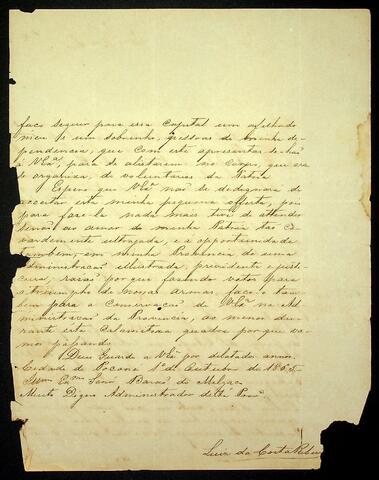 faço seguir para essa Capital um afilhado
meu e um sobrinho, pessôas de minha de-
pendencia, que com este apresentar-se-hão
á VExa, para se alistarem no Corpo, que se
organiza, de voluntarios da Patria
Espero que VExa não se dedignará de
acceitar esta minha pequena offerta, pois
para fase-la nada mais tive de attender
senão ao amor de minha Patria tão co-
vardemente ultrajada, e a opportunidade
tambem, em minha Provincia de uma
administração illustrada, previdente e justi-
ceira, rasão por que fasendo votos para
o triumpho de nossas armas, faço-o tam-
bem para a Conservação de VExa na Ad-
ministração da Provincia, ao menos du-
rante esta Calamitosa quadra por que va-
mos passando.
Deus Guarde a VExa por dilatados annos.
Cidade de Poconé 1º de Outubro de 1865.
Illmo Exmo Senr Barão de Melgaço
Muito Digno Administrador desta Prova
Luis da Costa Ribeiro